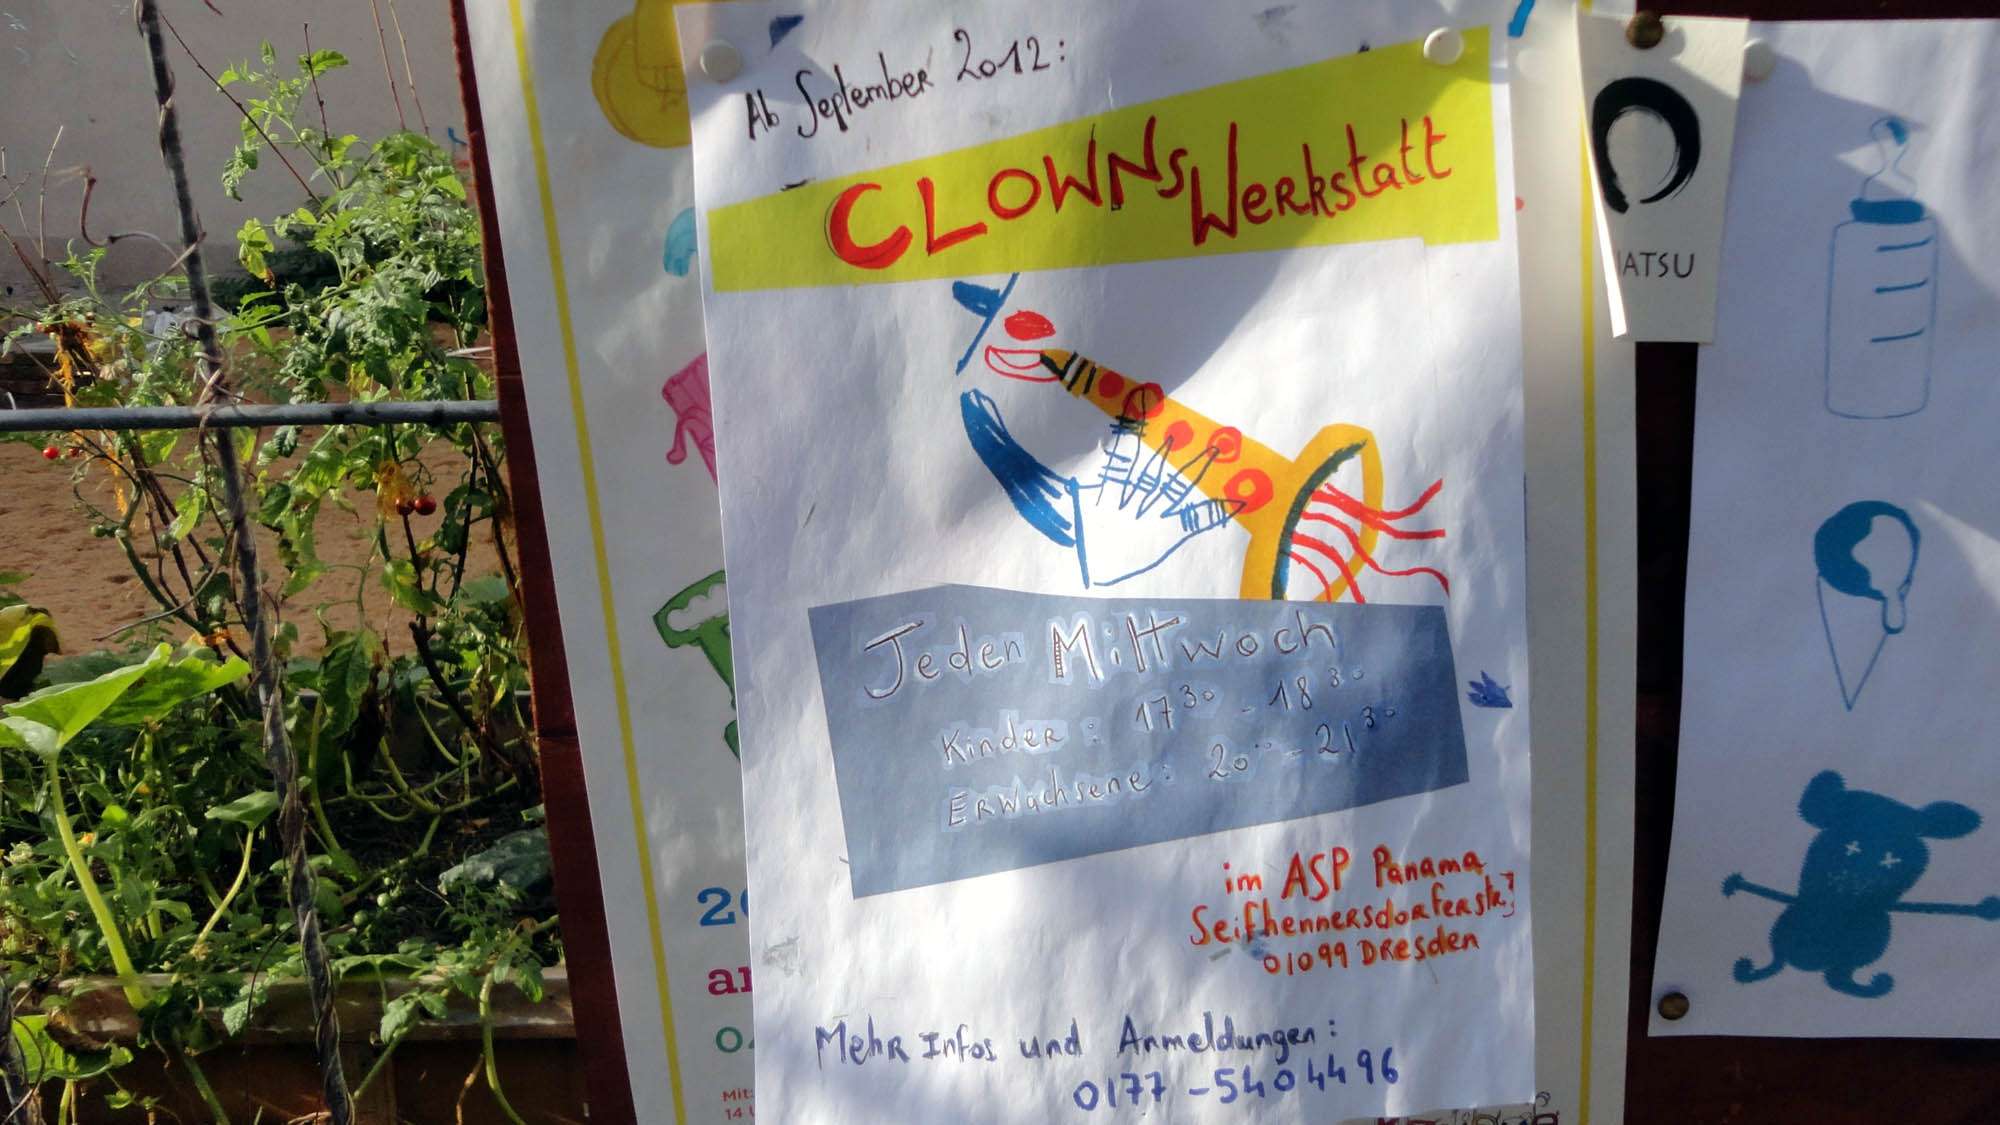 Ab September 2012:
CLOWNS Werkstatt
Jeden Mittwoch
Kinder: 17 30 - 18 30
Erwachsene: 20 00 - 21 30
im ASP Panama
Seifhennersdorferstr.
01099 Dresden
Mehr Infos und Anmeldungen:
0177-5404496
IATSU
Mit: